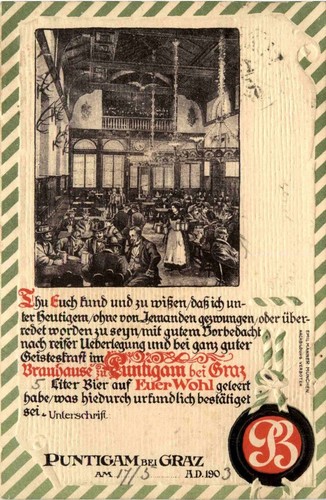 Thu Euch kund und zu wißen/daß ich un-
ter Heutigem/ohne von Jemanden gezwungen/oder über-
redet worden zu seyn/mit gutem Vorbedacht
nach reifer Ueberlegung und bei ganz guter
Geisteskraft im
Brauhause zu Puntigam bei Graz
5 Liter Bier auf Euer Wohl geleert
habe/was hiedurch urkundlich bestätiget
sei. Unterschrift:
PB
PUNTIGAM BEI GRAZ
AM 17/3 A.D. 1903